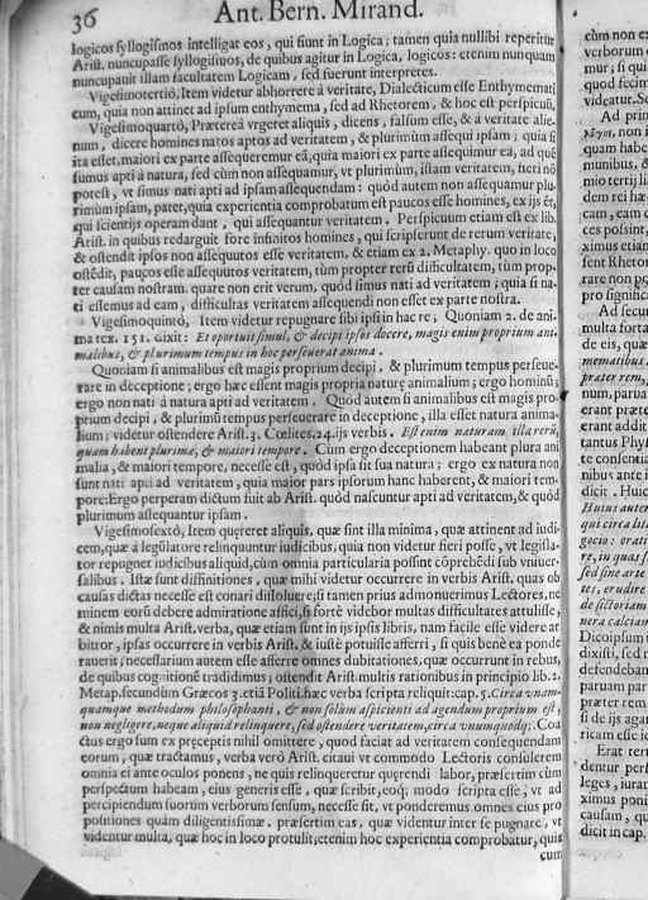 36
Ant. Bern. Mirand.
logicos syllogismos intelligat eos, qui fiunt in Logica; tamen quia nullibi reperitur
Arist. nuncupasse syllogismos, de quibus agitur in Logica, logicos: etenim nunquam
nuncupauit illam facultatem Logicam, sed fuerunt interpretes.
Vigesimotertiò, Item videtur abhorrere à veritate, Dialecticum esse Enthymemati
cum, quia non attinet ad ipsum enthymema, sed ad Rhetorem, & hoc est perspicuũ,
Vigesimoquartò, Prætereà vrgeret aliquis, dicens, falsum esse, & a veritate alie-
num, dicere homines natos aptos ad veritatem, & plurimùm assequi ipsam; quia si
ita esset, maiori ex parte assequeremur eã, quia maiori ex parte assequimur ea, ad quę
sumus apti à natura, sed cùm non assequamur, vt plurimùm, istam veritatem, fieri nõ
potest, vt simus nati apti ad ipsam assequendam: quòd autem non assequamur plu-
rimùm ipsam, patet, quia experientia comprobatum est paucos esse homines, ex ijs ēt,
qui scientijs operam dant, qui assequantur veritatem. Perspicuum etiam est ex lib.
Arist. in quibus redarguit fore infinitos homines, qui scripserunt de rerum veritate,
& ostendit ipsos non assequutos esse veritatem, & etiam ex 2. Metaphy. quo in loco
ostēdit, paucos esse assequutos veritatem, tùm propter rerũ difficultatem, tùm prop-
ter causam nostram. quare non erit verum, quòd simus nati ad veritatem; quia si na-
ti essemus ad eam, difficultas veritatem assequendi non esset ex parte nostra.
Vigesimoquintò, Item videtur repugnare sibi ipsi in hac re; Quoniam 2. de ani-
ma tex. 151. dixit: Et oportuit simul, & decipi ipsos docere, magis enim proprium ani-
malibus, & plurimum tempus in hoc perseuerat anima.
Quoniam si animalibus est magis proprium decipi, & plurimum tempus perseue-
rare in deceptione; ergo hæc essent magis propria naturę animalium; ergo hominũ;
ergo non nati à natura apti ad veritatem. Quòd autem si animalibus est magis pro-
prium decipi, & plurimũ tempus perseuerare in deceptione, illa esset natura anima-
lium; videtur ostendere Arist. 3. Cœlites. 24. ijs verbis. Est enim naturam illa rerũ,
quam habent plurima, & maiori tempore. Cùm ergo deceptionem habeant plura ani
malia, & maiori tempore, necesse est, quòd ipsa sit sua natura; ergo ex natura non
sunt nati apti ad veritatem, quia maior pars ipsorum hanc haberent, & maiori tem-
pore: Ergo perperam dictum fuit ab Arist. quòd nascuntur apti ad veritatem, & quòd
plurimum assequantur ipsam.
Vigesimosextò, Item quęreret aliquis, quæ sint illa minima, quæ attinent ad iudi-
cem, quæ à legislatore relinquuntur iudicibus, quia non videtur fieri posse, vt legisla-
tor repugnet iudicibus aliquid, cùm omnia particularia possint cõprehēdi sub vniuer-
salibus. Istæ sunt diffinitiones, quæ mihi videtur occurrere in verbis Arist. quas ob
causas dictas necesse est conari dissoluere; si tamen prius admonuerimus Lectores, ne
minem eorũ debere admiratione affici, si fortè videbor multas difficultates attulisse,
& nimis multa Arist. verba, quæ etiam sunt in ijs ipsis libris, nam facile esse videre ar
bitror, ipsas occurrere in verbis Arist. & iustè potuisse afferri, si quis benè ea ponde
rauerit; necessarium autem esse afferre omnes dubitationes, quæ occurrunt in rebus,
de quibus cognitionē tradidimus; ostendit Arist. multis rationibus in principio lib. 2.
Metap. secundùm Græcos 3. etiã Politi. hæc verba scripta reliquit: cap. 5. Circa vnam-
quamque methodum philosophanti, & non solùm aspicienti ad agendum proprium est,
non negligere, neque aliquid relinquere, sed ostendere veritatem, circa vnumquodq;. Coa
ctus ergo sum ex pręceptis nihil omittere, quod faciat ad veritatem consequendam
eorum, quæ tractamus, verba verò Arist. citaui vt commodo Lectoris consulerem
omnia ei ante oculos ponens, ne quis relinqueretur quęrendi labor, præsertim cùm
perspectum habeam, eius generis esse, quæ scribit, eoq; modo scripta esse, vt ad
percipiendum suorum verborum sensum, necesse sit, vt ponderemus omnes eius pro
positiones quàm diligentissimæ, præsertim eas, quæ videntur inter se pugnare, vt
videntur multa, quæ hoc in loco protulit; etenim hoc experientia comprobatur, quis
cum